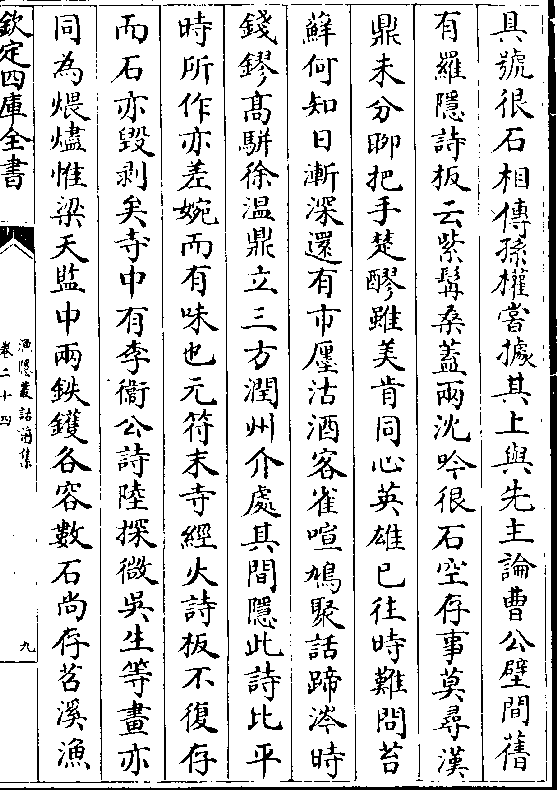 具號很石相傳孫權嘗據其上與先主論曹公壁間舊
有羅隱詩板云紫髯桑蓋兩沈吟很石空存事莫尋漢
鼎未分聊把手楚醪雖美肯同心英雄已往時難問苔
蘚何知日漸深還有市廛沽酒客雀喧鳩聚話蹄涔時
錢鏐高駢徐温鼎立三方潤州介處其間隱此詩比平
時所作亦差婉而有味也元符末寺經火詩板不復存
而石亦毀剥矣寺中有李衞公詩陸探微吳生等畫亦
同為煨燼惟梁天監中兩鉄鑊各容數石尚存苕溪漁
欽定四庫全書
漁隱叢話前集
卷二十四
九